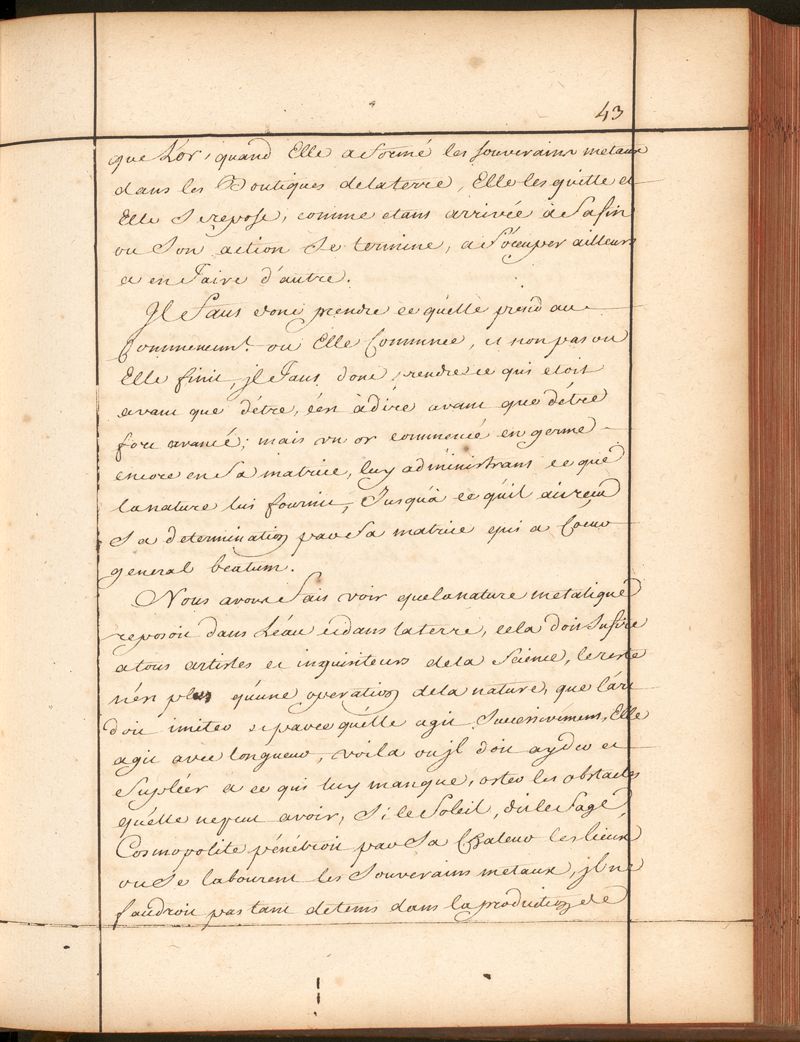 43
que L'or, quand Elle a formé les souverains metaux
dans les Boutiques de la terre, Elle les quitte et
Elle se repose, comme etant arrivée à sa fin
ou son action se termine, a s'occuper ailleurs
a en faire d'autre.
Jl faut donc prendre ce qu'elle prend au
Commencem.t ou Elle Commence, et non pas ou
Elle finit, jl faut donc prendre ce qui etoit
avant que d'étre, c'ést à dire avant que d'étre
fort avancé; mais vn or commencé en germe
encore en sa matrice, luy administrant ce que
la nature lui fournit, Jusqu'à ce qu'il ait reçu
sa determination par sa matrice qui a
general beatum.
Nous avons fait voir que la nature metalique
reposoit dans L'éau et dans la terre, cela doit sufire
a tous artistes et inquisiteurs de la Science, le reste
n'ést plus qu'une operation de la nature, que l'art
doit imiter et parce qu'élle agit Successivement, Elle
agit avec longueur, voila ou jl doit ayder et
Supléer a ce qui luy manque, oster les obstacles
qu'élle ne peut avoir, Si le Soleil, dit le Sage
Cosmopolite pénétroit par sa Chaleur les lieux
ou se labourent les Souverains metaux, jl ne
faudroit pas tant de tems dans la production de